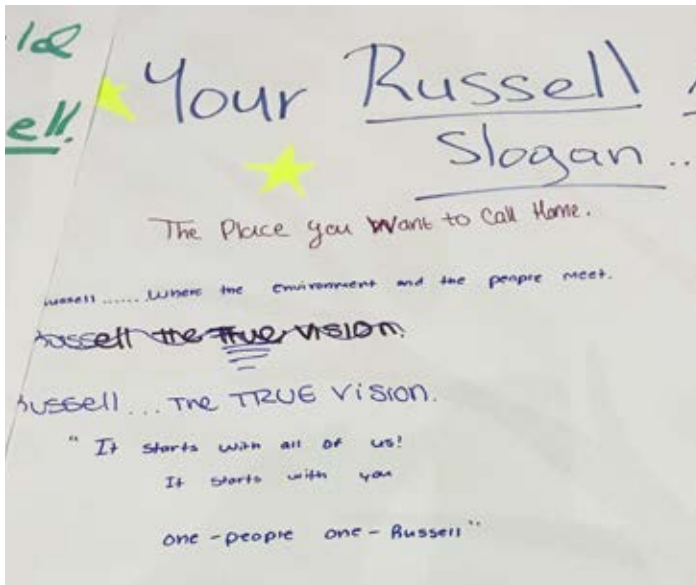 ell.
Your Russell
Slogan...
The Place you Want to Call Home.
ussell...... Where the environment and the people meet.
Russell the True Vision.
Russell... The TRUE Vision.
"It starts with all of us!
It starts with you
one-people one-Russell"